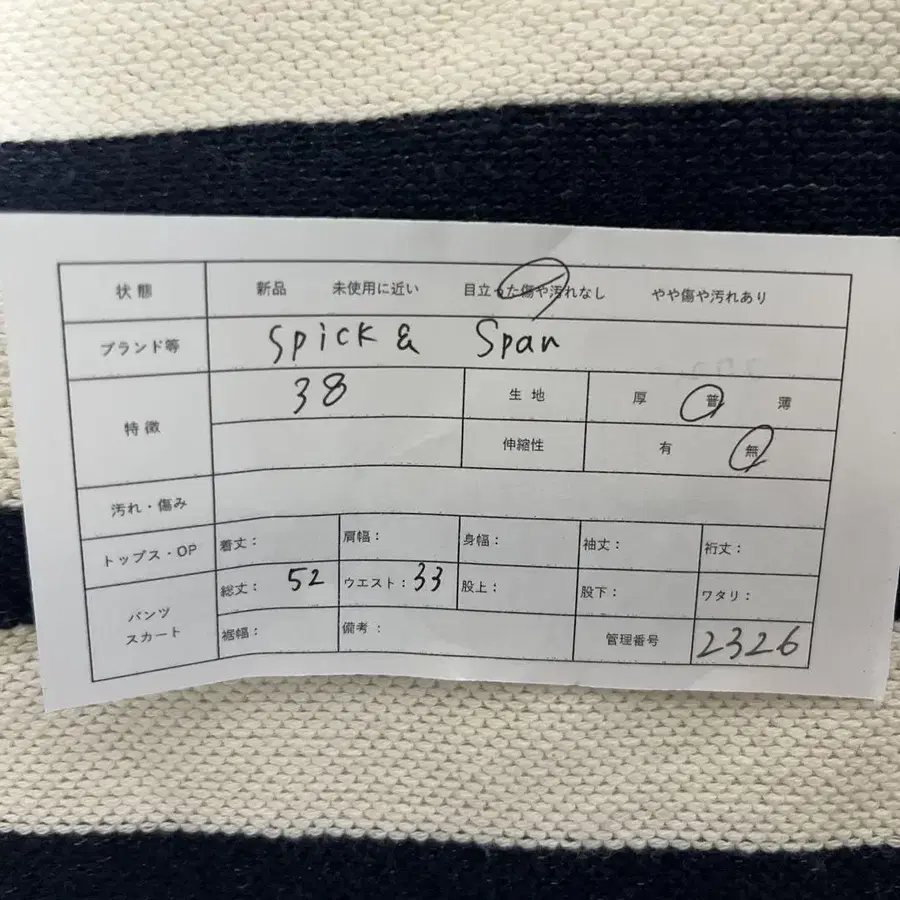 状態 新品 未使用に近い 目立った傷や汚れなし やや傷や汚れあり
ブランド等 Spick & Span
特徴 38 生地 厚 普 薄
伸縮性 有 無
汚れ・傷み
トップス・OP 着丈: 肩幅: 身幅: 袖丈: 裄丈:
パンツ スカート 総丈: 52 ウエスト: 33 股上: 股下: ワタリ:
裾幅: 備考: 管理番号 2326